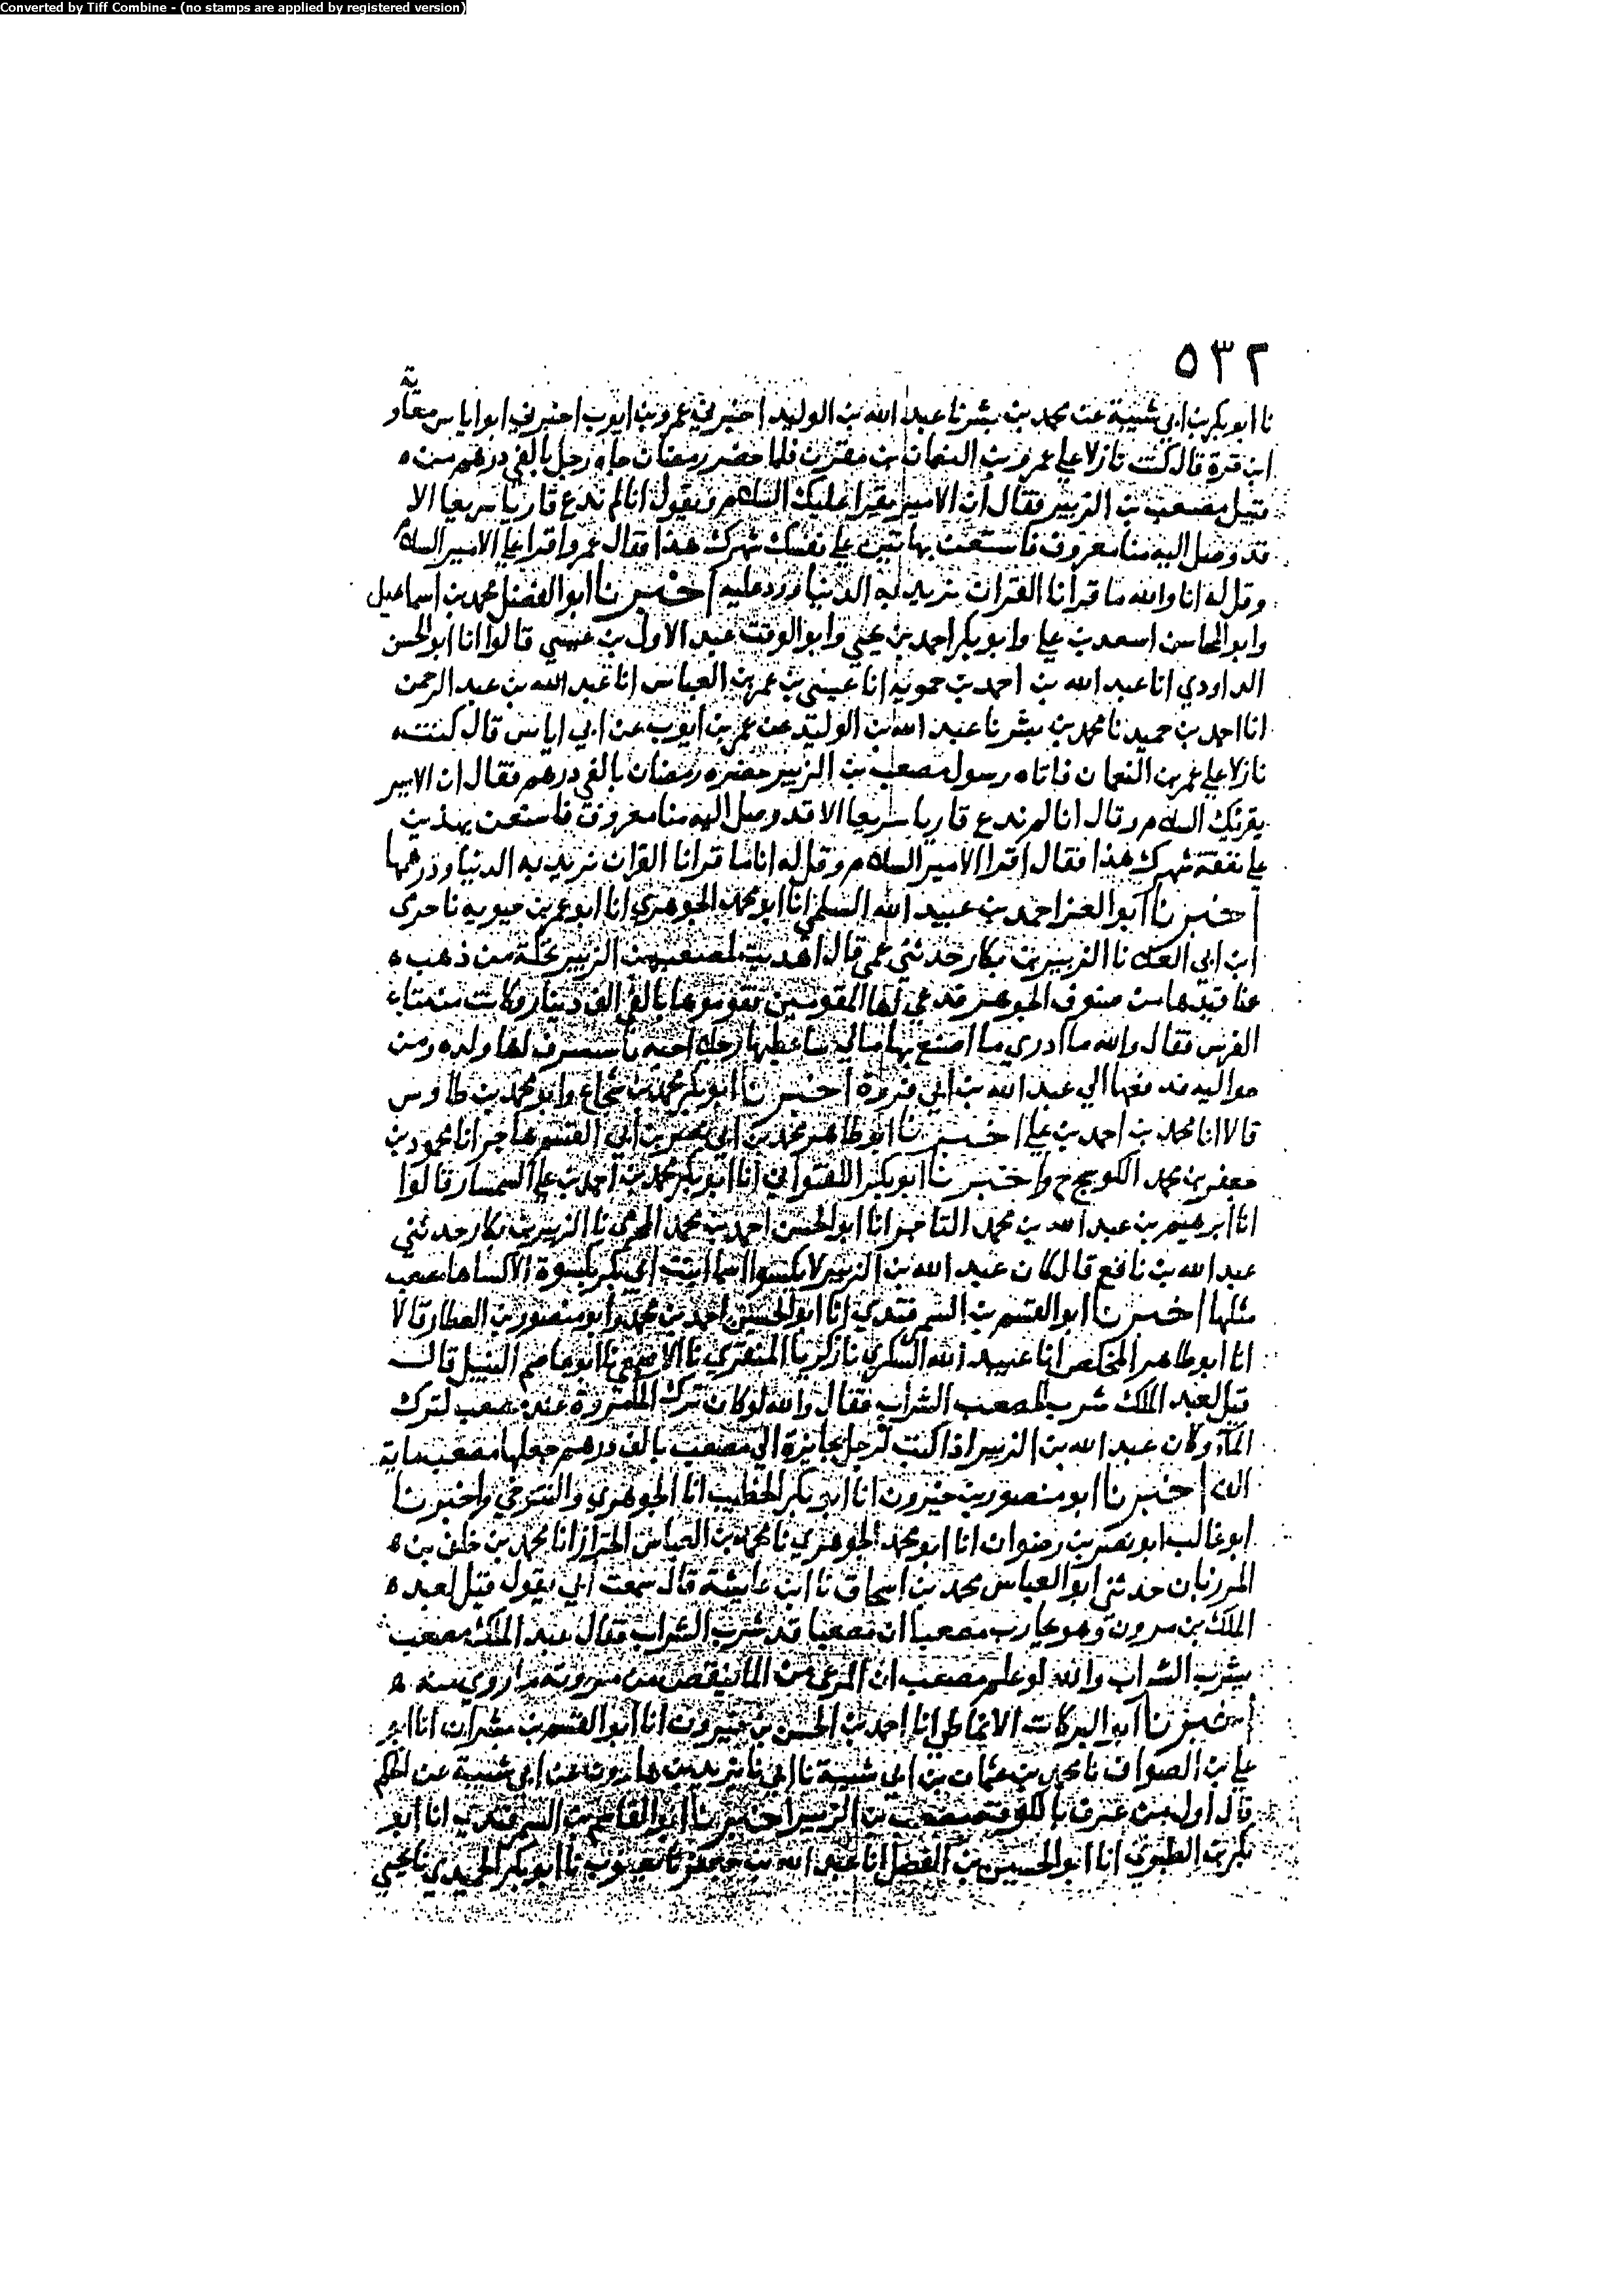 Converted by Tiff Combine - (no stamps are applied by registered version)
٥٣٢
نا ابو بكر بن ابي شيبة عن محمد بن بشر نا عبد الله بن الوليد اخبرني عمر بن ايوب اخبرني ابو اياس معاوية
ابن قرة قال كنت نازلا علي عمرو بن النعمان بن مقرن فلما حضر رمضان جاه رجل بالفي درهم من
قبيل مصعب بن الزبير فقال ان الامير يقرا عليك السلام ويقول انا لم ندع قاريا شريعا الا
قد وصل اليه منا معروف فاستعن بهاتين علي نفسك شهرك هذا فقال عمرو اقرا علي الامير السلام
وقل له انا والله ما قرانا القران نريد به الدنيا ورد عليه اخبرنا ابو الفضل محمد بن اسماعيل
وابو المحاسن اسعد بن علي وابو بكر احمد بن يحيي وابو الوقت عبد الاول بن عيسي قالوا انا ابو الحسن
الداودي انا عبد الله بن احمد بن حمويه انا عيسي بن عمر بن العباس انا عبد الله بن عبد الرحمن
انا احمد بن حميد نا محمد بن بشر نا عبد الله بن الوليد عن عمر بن ايوب عن ابي اياس قال كنت
نازلا علي عمر بن النعمان فاتاه رسول مصعب بن الزبير حضره رمضان بالفي درهم فقال ان الامير
يقرئك السلام وقال انا لم ندع قاريا شريعا الا قد وصل اليه منا معروف فاستعن بهذين
علي نفقة شهرك هذا فقال اقرا الامير السلام وقل له انا ما قرانا القران نريد به الدنيا ودرهمها
اخبرنا ابو العز احمد بن عبيد الله السلمي انا ابو محمد الجوهري انا ابو عمر بن حيويه نا حرمى
ابن ابي العلا نا الزبير بن بكار حدثني عمي قال اهديت لمصعب بن الزبير نخلة من ذهب
عناقيدها من صنوف الجوهر فدعي لها المقومين فقوموها بالفي الف دينار وكانت من متاع
الفرس فقال والله ما ادري ما اصنع بها رجلا احبه ولده ومن
مواليه فدفعها الي عبد الله بن ابي فروة اخبرنا ابو بكر محمد بن شجاع وابو محمد بن طاوس
قالا انا محمد بن احمد بن علي اخبرنا ابو طاهر محمد بن ابي نصر بن ابي القسم هاجر انا محمود بن
جعفر بن محمد الكوسج ح واخبرنا ابو بكر اللفتواني انا ابو بكر محمد بن احمد بن علي السمسار قالوا
انا ابرهيم بن عبد الله بن محمد التاجر انا ابو الحسن احمد بن محمد المخرمي نا الزبير بن بكار حدثني
عبد الله بن نافع قال كان عبد الله بن الزبير لا يكسوا اسما ابنت ابي بكر بكسوة الا كساها مصعب
مثلها اخبرنا ابو القسم بن السمرقندي انا ابو الحسين احمد بن محمد وابو منصور بن العطار قالا
انا ابو طاهر المخلص انا عبيد الله السكري نا زكريا المنقري نا الاصمعي نا ابو عاصم النبيل قال
قيل لعبد الملك شرب المصعب الشراب فقال والله لو كان ترك الما مروة عند مصعب لترك
الما وكان عبد الله بن الزبير اذا كتب لرجل بجايزة الي مصعب بالف درهم جعلها مصعب ماية
الف اخبرنا ابو منصور بن خيرون انا ابو بكر الخطيب انا الجوهري والتنوخي واخبرنا
ابو غالب ابو نصر بن رضوان انا ابو محمد الجوهري نا محمد بن العباس الخزاز انا محمد بن خلف بن
المرزبان حدثني ابو العباس محمد بن اسحاق نا ابن عايشة قال سمعت ابي يقول قيل لعبد
الملك بن مرون وهو يحارب مصعبا ان مصعبا قد شرب الشراب فقال عبد الملك مصعب
يشرب الشراب والله لو علم مصعب ان الري من الما ينقص من مروته ما روي منه
اخبرنا ابو البركات الانماطي انا احمد بن الحسن بن خيرون انا ابو القسم بن بشران انا ابو
علي بن الصواف نا محمد بن عثمان بن ابي شيبة نا ابي نا يزيد بن هارون عن ابي شيبة عن الحكم
قال اول من عرف بالكوفة مصعب بن الزبير اخبرنا ابو القاسم بن السمرقندي انا ابو
بكر بن الطبري انا ابو الحسين بن الفضل انا عبد الله بن جعفر نا يعقوب نا ابو بكر الحميدي نا يحيي